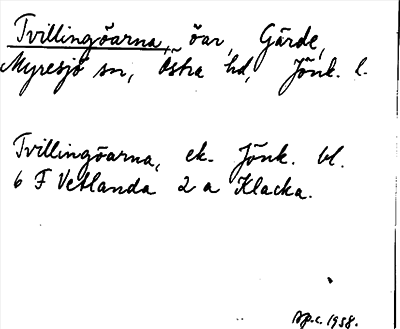 Tvillingöarna, öar, Gärde,
Myresjö sn, Östra hd, Jönk. l.
Tvillingöarna, ek. Jönk. bl.
6 F Vetlanda 2 a Klacka.
Ap.c. 1958.